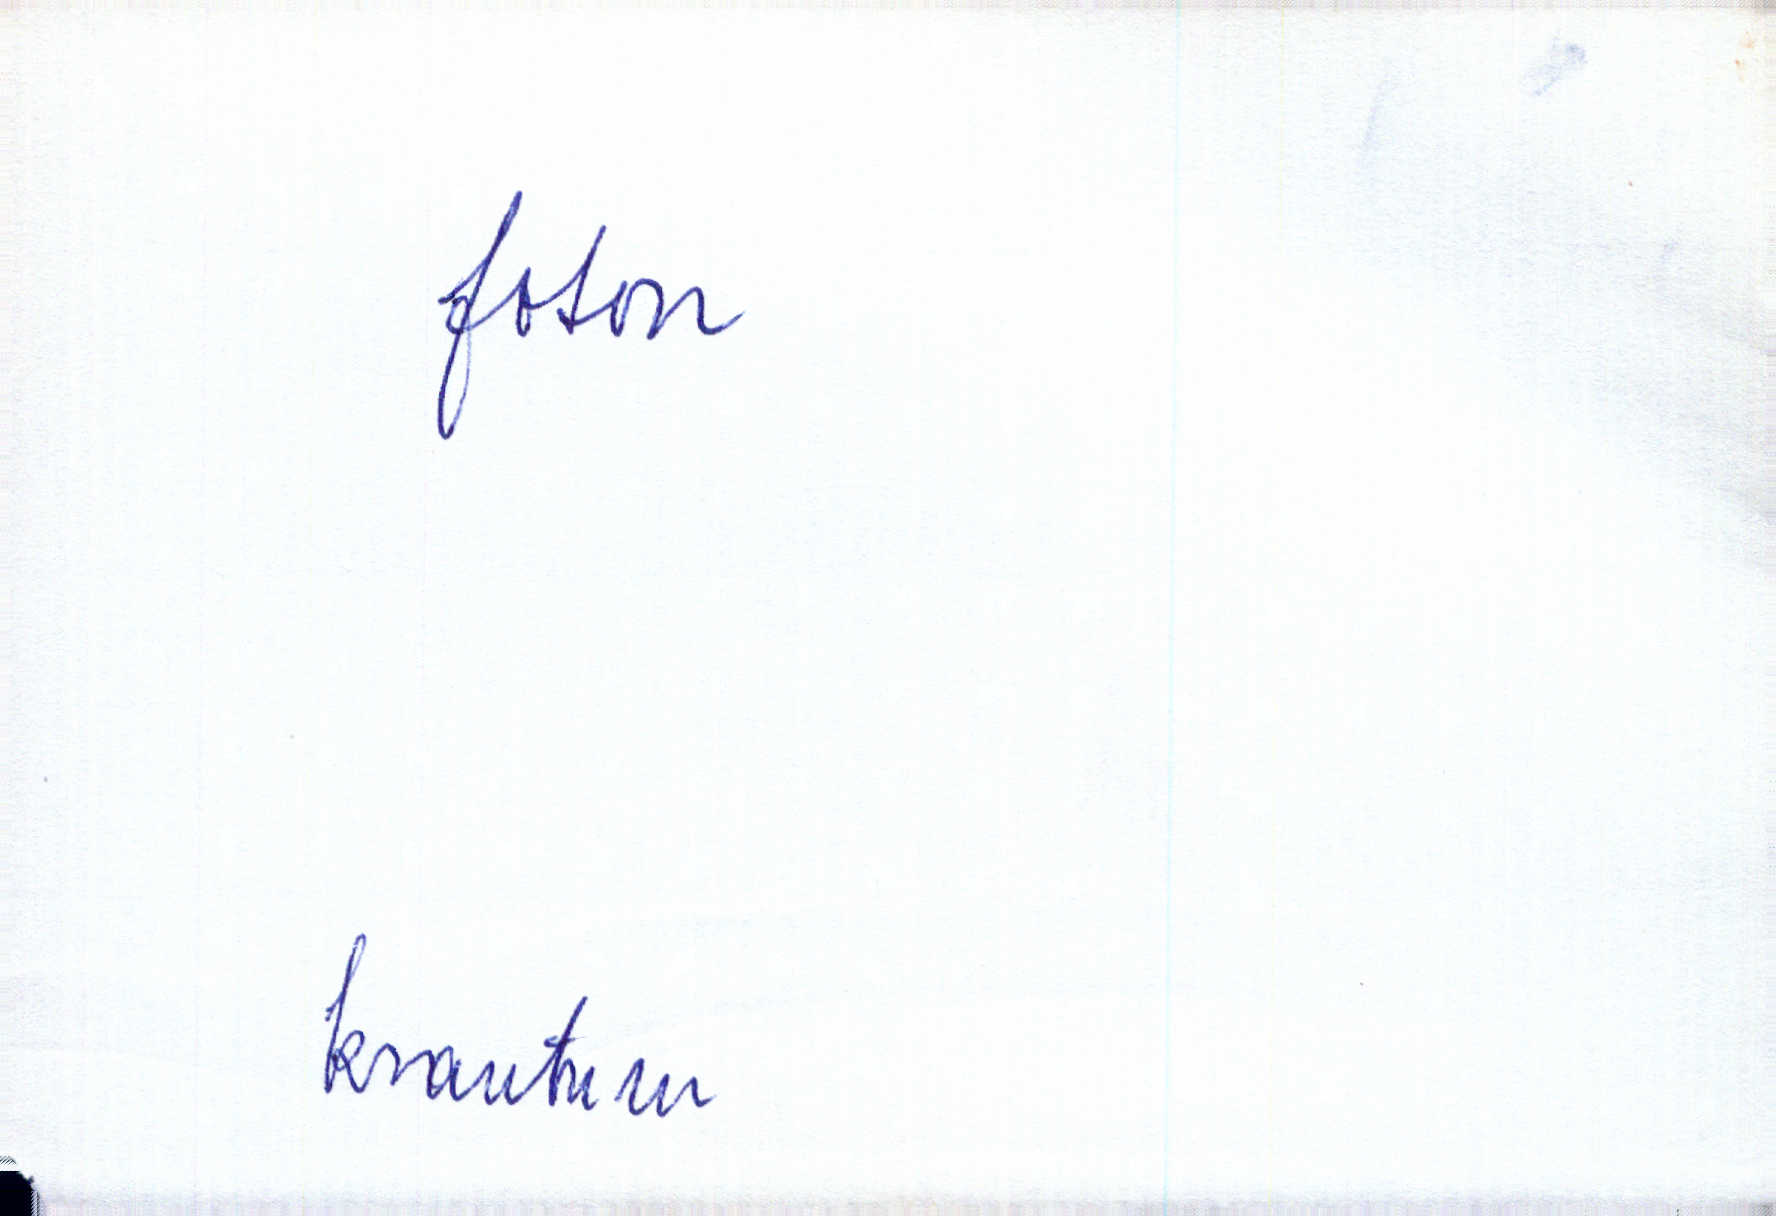 foton
kvantum